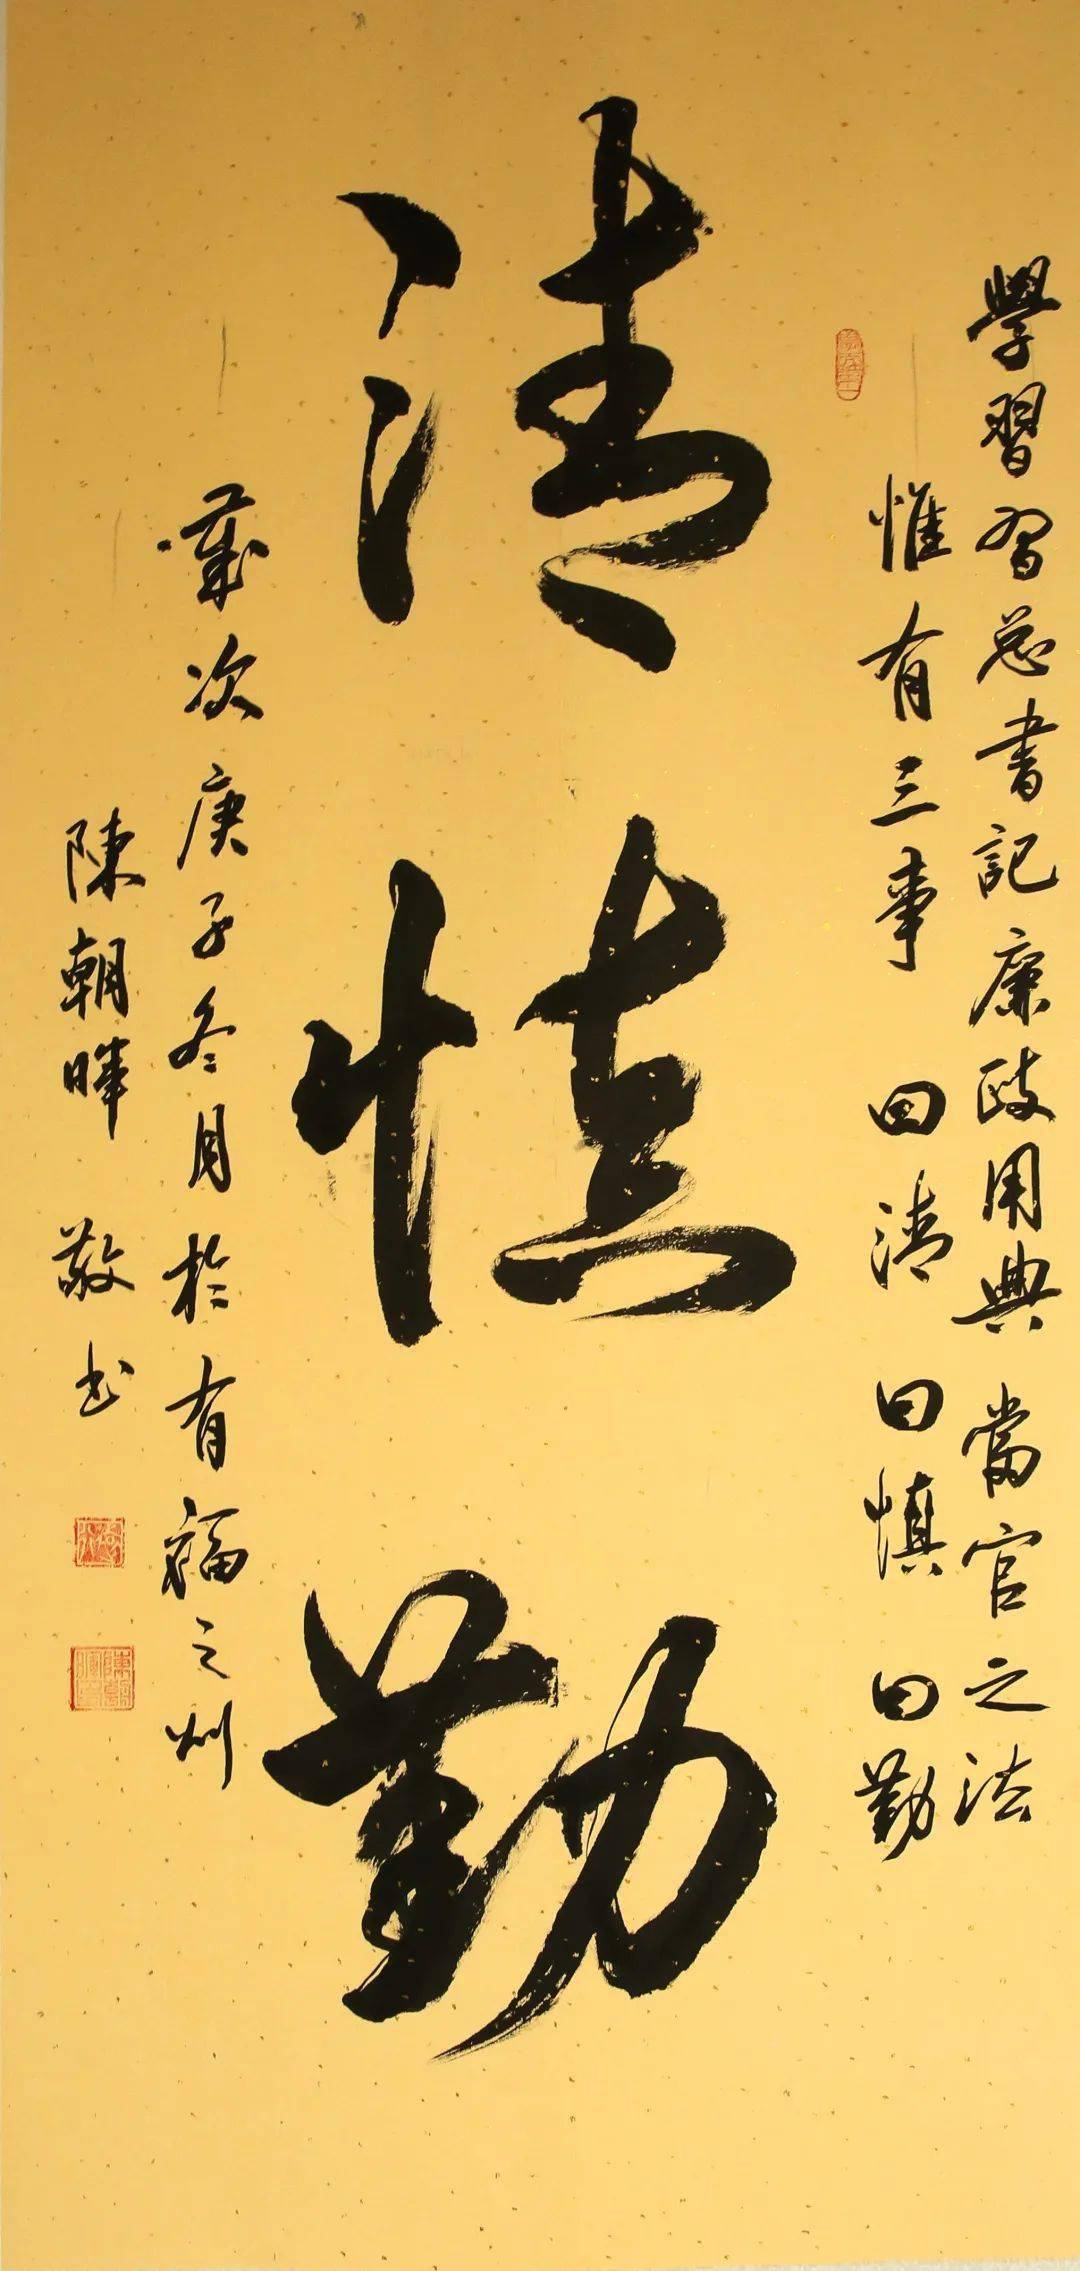 學習習总書記廉政用典 當官之法
惟有三事 曰清 曰慎 曰勤
清慎勤
歲次庚子冬月於有福之州
陳朝暉 敬书